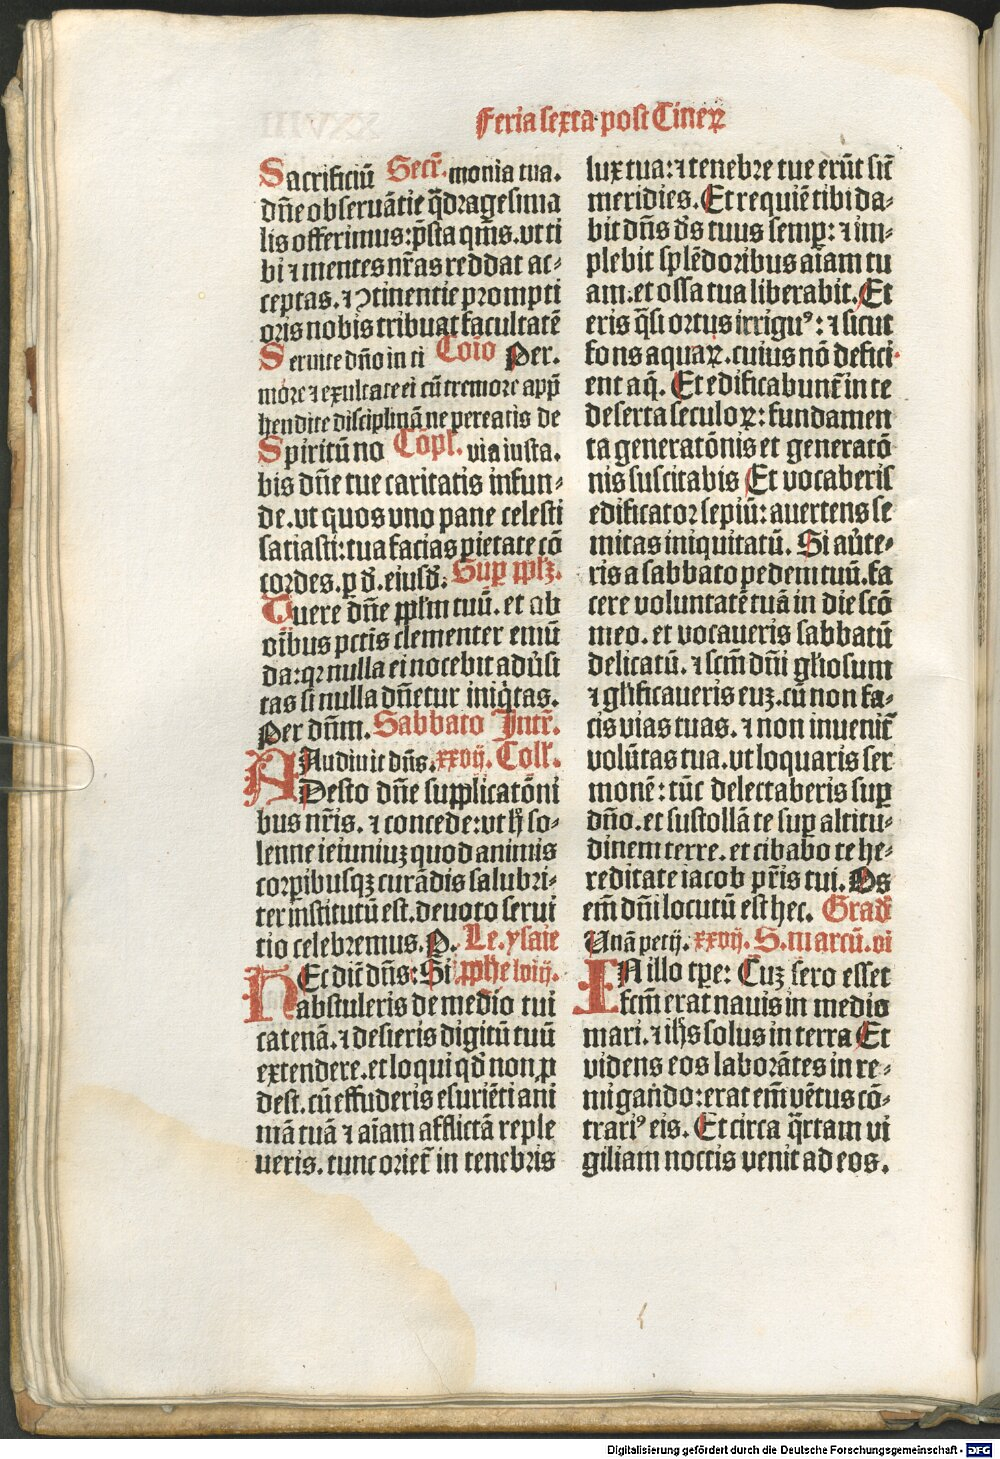 Feria sexta post Cinerꝝ
Sacrificiū Secr̄. monia tua.
dn̄e obseruātie q̄dragesima
lis offerimus: p̄sta q̄ms. vt ti
bi ⁊ mentes nr̄as reddat ac⸗
ceptas. ⁊ ꝯtinentie prompti
oris nobis tribuat facultatē
Seruite dn̄o in ti Cōio Per.
more ⁊ exultate ei cū tremore app̄
hendite disciplinā ne pereatis de
Spiritū no Cōpl. via iusta.
bis dn̄e tue caritatis infun⸗
de. vt quos vno pane celesti
satiasti: tua facias pietate cō
cordes. p d̄. eiusd̄. Suꝑ ppl̄ꝫ.
Tuere dn̄e ppl̄m tuū. et ab
oībus pctīs clementer emū
da: qꝛ nulla ei nocebit aduˀsi
tas si nulla dn̄etur iniq̇tas.
Per dn̄m. Sabbato Intr̄.
Audiuit dn̄s. xxvij. Coll̄.
ADesto dn̄e supplicatōni
bus nr̄is. ⁊ concede: vt h̄ so⸗
lenne ieiuniuꝫ quod animis
corꝑibusqꝫ curādis salubri⸗
ter institutū est. deuoto serui
tio celebremus. P. Le. ysaie
HEc dic̄ dn̄s: Si ꝓphe lviij.
abstuleris de medio tui
catenā. ⁊ desieris digitū tuū
extendere. et loqui qd̄ non ꝓ
dest. cū effuderis esuriēti ani
mā tuā ⁊ aīam afflictā reple
ueris. tunc oriet᷑ in tenebris
lux tua: ⁊ tenebre tue erūt sic̄
meridies. Et requiē tibi da⸗
bit dn̄s ds̄ tuus semꝑ: ⁊ im⸗
plebit splēdoribus aīam tu
am: et ossa tua liberabit. Et
eris q̄si ortus irriguꝰ: ⁊ sicut
fons aquaꝝ. cuius nō defici
ent aq̄. Et edificabunt᷑ in te
deserta seculoꝝ: fundamen
ta generatōnis et generatō
nis suscitabis Et vocaberis
edificator sepiū: auertens se
mitas iniquitatū. Si aūte⸗
ris a sabbato pedem tuū. fa
cere voluntatē tuā in die scō
meo. et vocaueris sabbatū
delicatū. ⁊ scm̄ dn̄i gl̄iosum
⁊ gl̄ificaueris euꝫ. cū non fa⸗
cis vias tuas. ⁊ non inuenit᷑
volūtas tua. vt loquaris ser
monē: tūc delectaberis suꝑ
dn̄o. et sustollā te suꝑ altitu⸗
dinem terre. et cibabo te he⸗
reditate iacob pr̄is tui. Os
em̄ dn̄i locutū est hec. Grad̄
Vnā petij. xxvij. S. marcū. vi
IN illo tꝑe: Cuꝫ sero esset
fcm̄ erat nauis in medio
mari. ⁊ ih̄s solus in terra Et
videns eos laborātes in re⸗
migando: erat em̄ vētus cō⸗
trariꝰ eis. Et circa q̄rtam vi
giliam noctis venit ad eos.
Digitalisierung gefördert durch die Deutsche Forschungsgemeinschaft - DFG